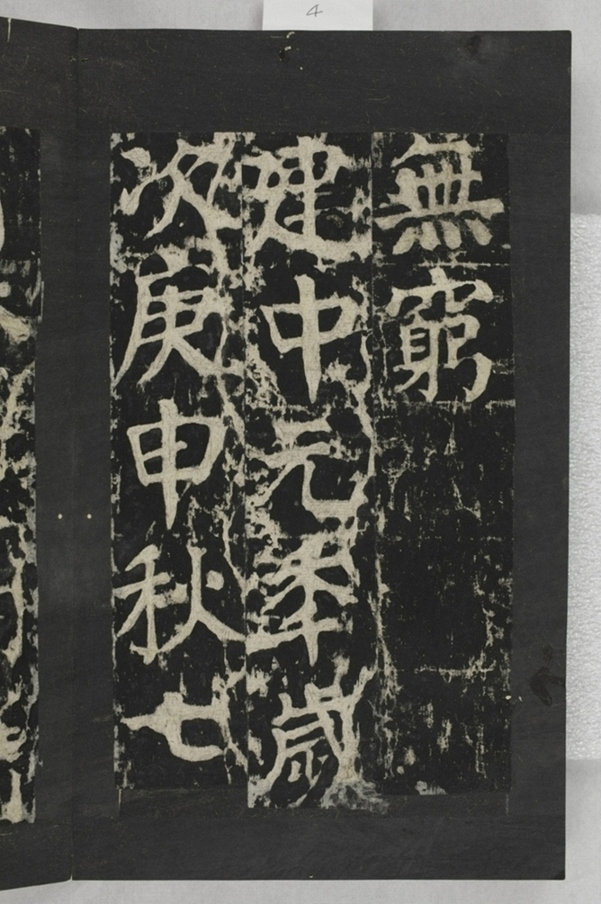 4
無窮
建中元年歲
次庚申秋七